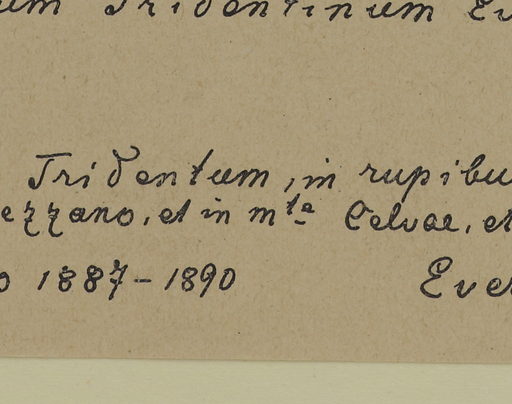 um Tridentinum Ev
Tridentum, in rupibu
ezzano, et in mte Celvae, et
o 1887-1890
Ever